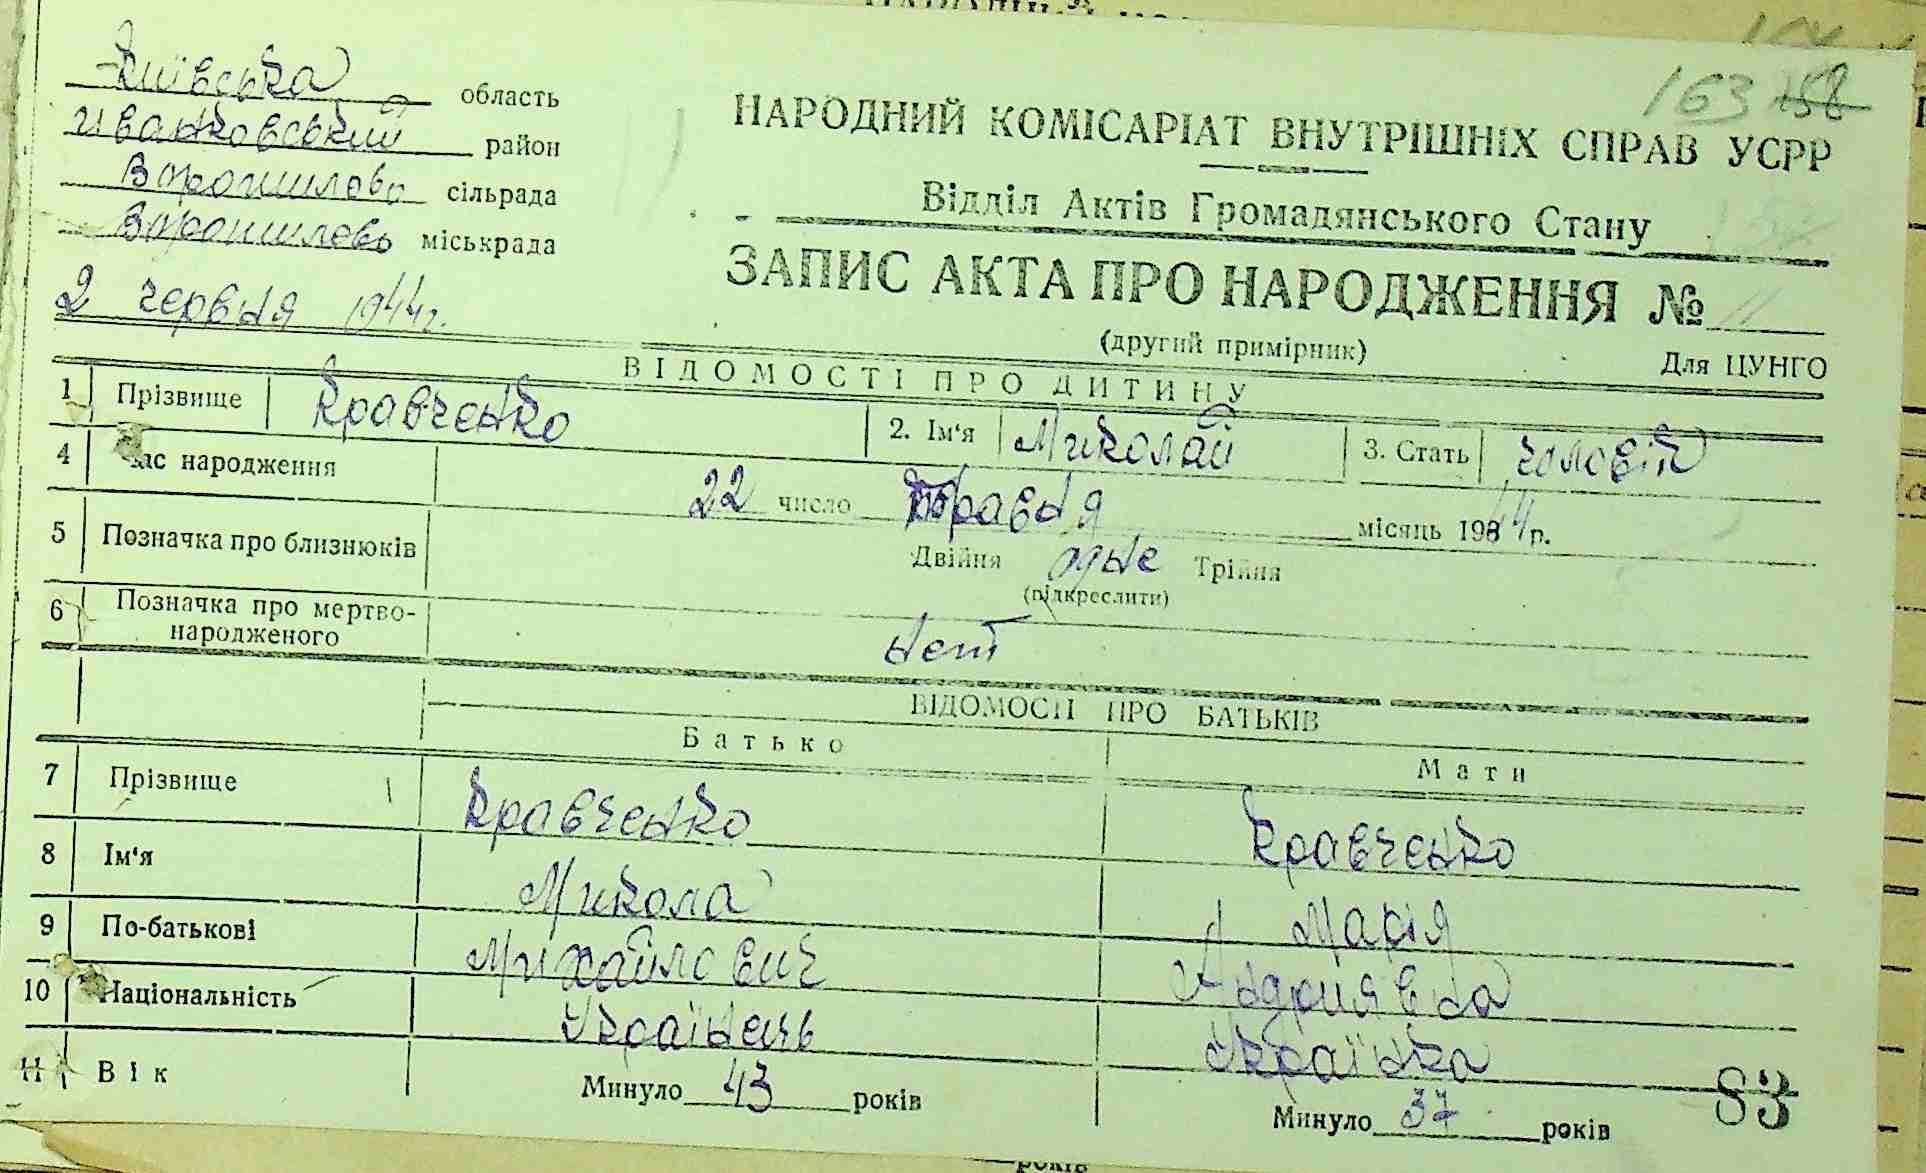 Київська область
Иванковський район
Ворошилово сільрада
Ворошилово міськрада
2 червня 1944 г.
163 158
НАРОДНИЙ КОМІСАРІАТ ВНУТРІШНІХ СПРАВ УСРР
Відділ Актів Громадянського Стану
ЗАПИС АКТА ПРО НАРОДЖЕННЯ № 11
(другий примірник) Для ЦУНГО
ВІДОМОСТІ ПРО ДИТИНУ
1 Прізвище Кравченко 2. Ім'я Миколай 3. Стать чоловік
4 Час народження 22 число Травня місяць 1944 р.
5 Позначка про близнюків Двійня одне Трійня
(підкреслити)
6 Позначка про мертво-
народженого нет
ВІДОМОСТІ ПРО БАТЬКІВ
Батько Мати
7 Прізвище Кравченко Кравченко
8 Ім'я Микола Марія
9 По-батькові Михайлович Андриявна
10 Національність Українець Українка
11 Вік Минуло 43 років Минуло 37 років
83
років